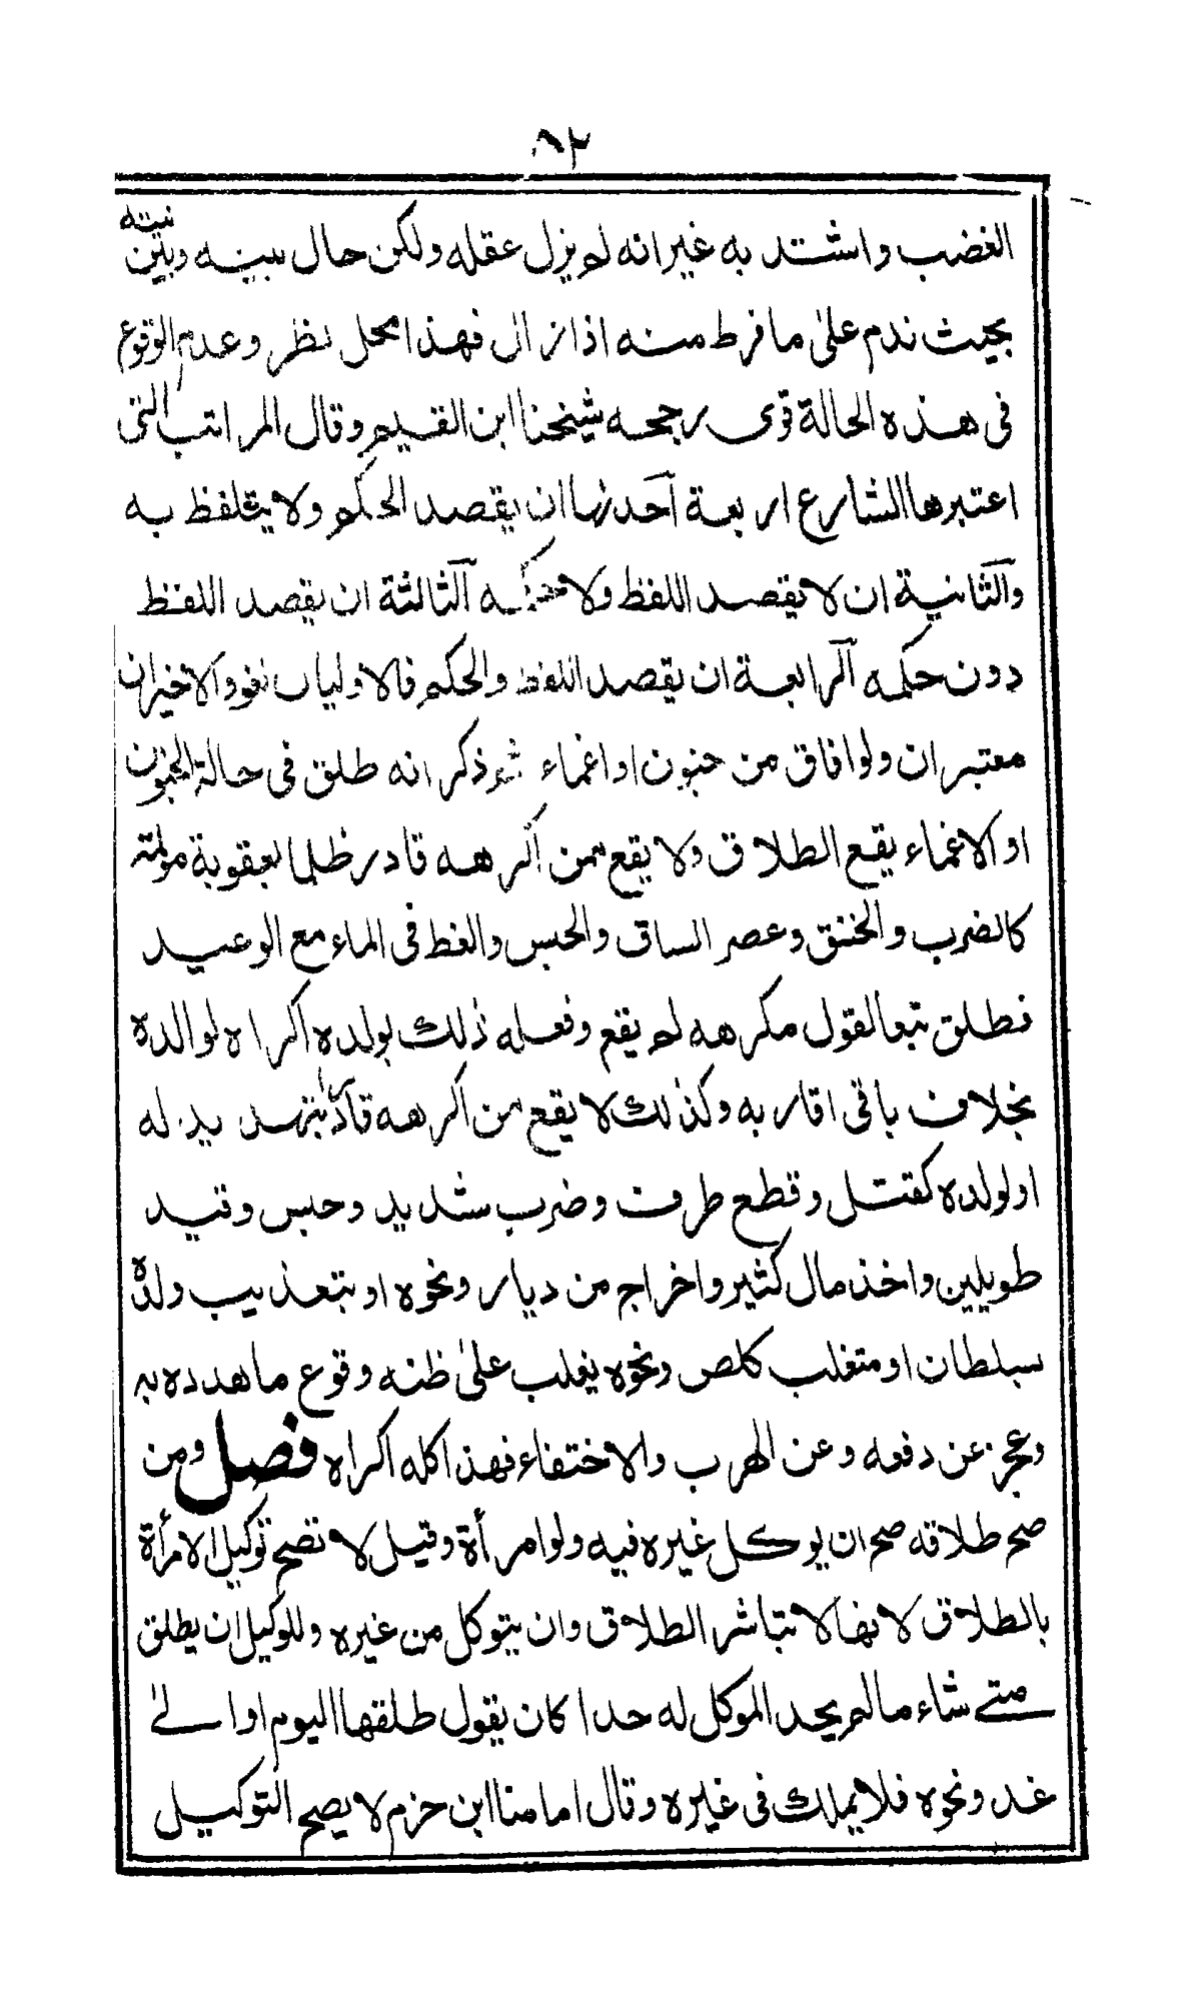 ٨٢
الغضب واشتد به غيرانه لم يزل عقله ولكن حال بينه وبين نيته
بحيث ندم على ما فرط منه اذا زال فهذا محل نظر وعدم الوقوع
فى هذه الحالة قوى رجحه شيخنا ابن القيم وقال المراتب التى
اعتبرها الشارع اربعة آحدها ان يقصد الحكم ولا يتلفظ به
والثانية ان لا يقصد اللفظ ولا حكمه آلثالثة ان يقصد اللفظ
دون حكمه آلرابعة ان يقصد اللفظ والحكم فالاوليان لغو والاخيران
معتبران ولو افاق من جنون او اغماء ثم ذكر انه طلق فى حالة الجنون
او الاغماء يقع الطلاق ولا يقع ممن اكرهه قادر ظلما بعقوبة مولمة
كالضرب والخنق وعصر الساق والحبس والغط فى الماء مع الوعيد
فطلق تبعا لقول مكرهه لم يقع وفعله ذلك بولده اكراه لوالده
بخلاف باقى اقاربه وكذلك لا يقع من اكرهه قادر بتهديد له
او لولده كقتل وقطع طرف وضرب شديد وحبس وقيد
طويلين واخذ مال كثير واخراج من ديار ونحوه او بتعذيب ولده
سبلطان او متغلب كلص ونحوه يغلب على ظنه وقوع ما هدده به
وعجز عن دفعه وعن الهرب والاختفاء فهذا كله اكراه فصل ومن
صح طلاقه صح ان يوكل غيره فيه ولو امرأة وقيل لا تصح توكيل الامرأة
بالطلاق لانها لا تباشر الطلاق وان يتوكل من غيره وللوكيل ان يطلق
متے شاء ما لم يحد الموكل له حدا كان يقول طلقها اليوم او الے
غد ونحوه فلا يملك فى غيره وقال امامنا ابن حزم لا يصح التوكيل